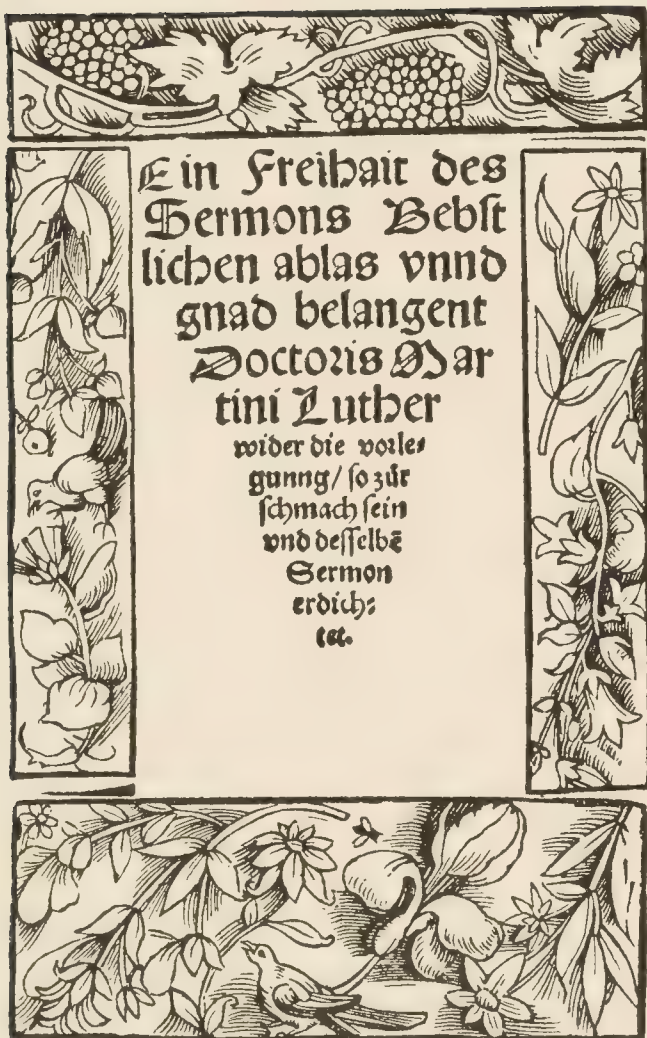 Ein Freihait des
Sermons Bebst
lichen ablas vnnd
gnad belangent
Doctoris Mar
tini Luther
wider die vorle⸗
gunng/ so zůr
schmach sein
vnd desselbē
Sermon
erdich⸗
tet.